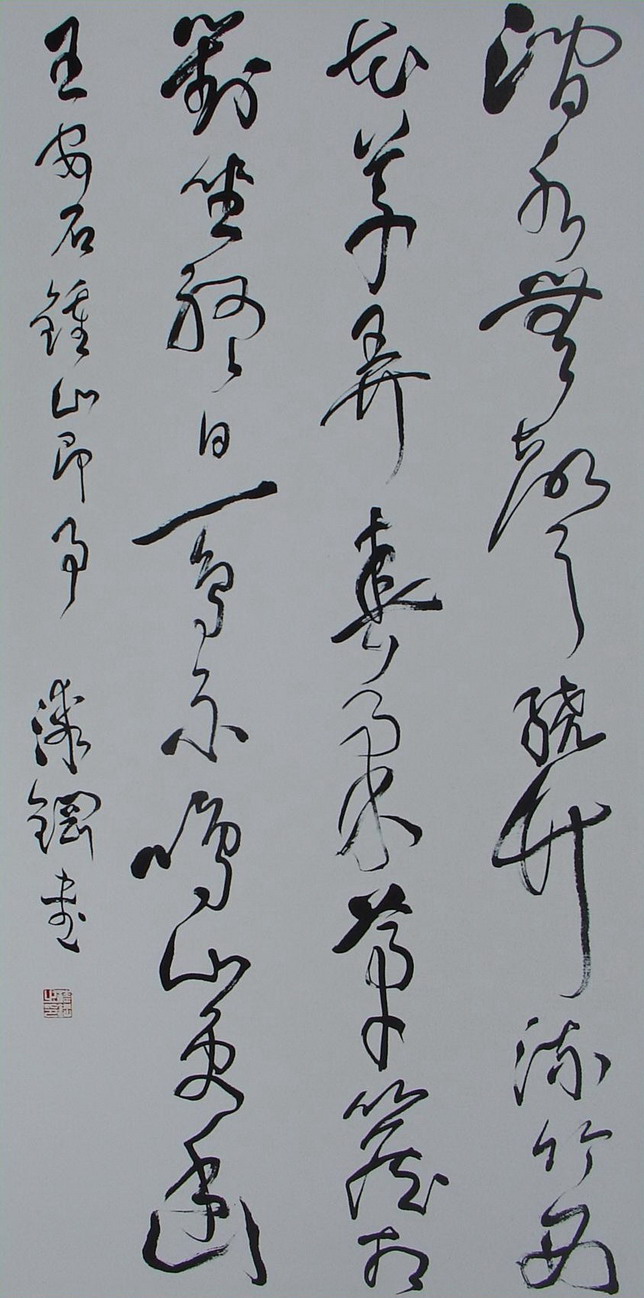 澗水無聲繞竹流竹西
花草弄春柔茅簷相
對坐終日一鳥不鳴山更幽
王安石鍾山即事 漆鋼書